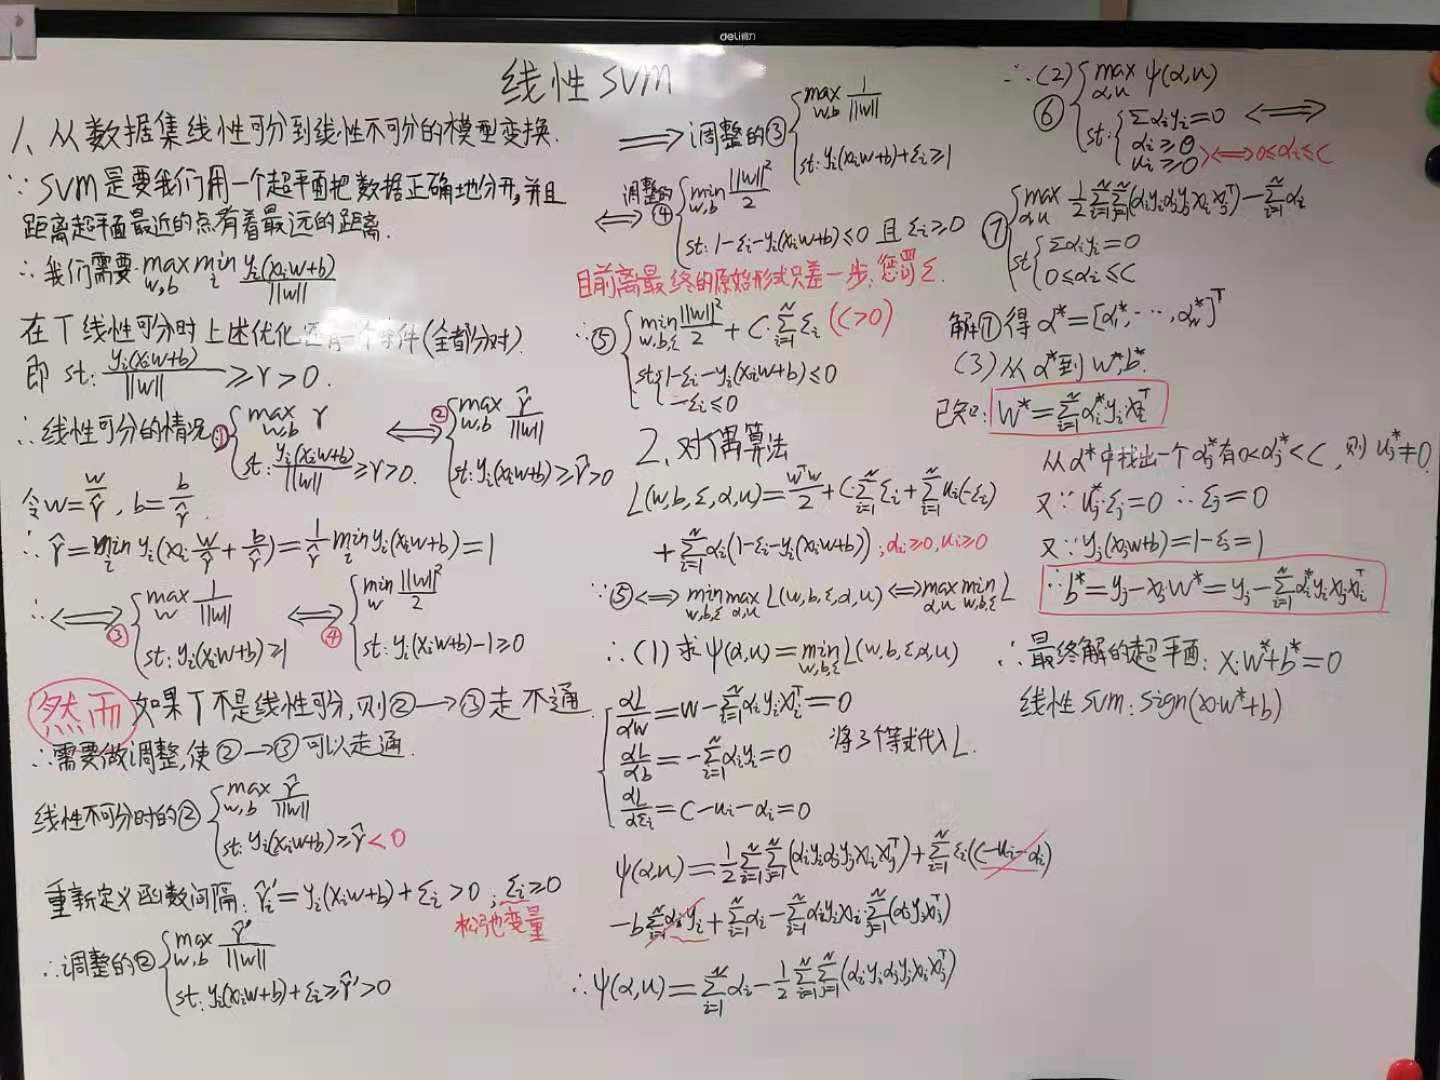 deli得力
线性SVM
1、从数据集线性可分到线性不可分的模型变换.
∵SVM是要我们用一个超平面把数据正确地分开,并且
距离超平面最近的点有着最远的距离.
∴我们需要 max_{w,b} min_i y_i(x_i w+b)/||w||
在T线性可分时上述优化还有一个条件(全部分对).
即 st: y_i(x_i w+b)/||w|| ≥ γ > 0.
∴线性可分的情况: ① { max_{w,b} γ st: y_i(x_i w+b)/||w|| ≥ γ > 0. ⟺ ② { max_{w,b} γ̂/||w|| st: y_i(x_i w+b) ≥ γ̂ > 0
令 w = w/γ̂ , b = b/γ̂ .
∴ γ̂ = min_i y_i(x_i·w/γ̂ + b/γ̂) = 1/γ̂ min_i y_i(x_i w+b) = 1
∴ ⟺ ③ { max_w 1/||w|| st: y_i(x_i w+b) ≥ 1 ⟺ ④ { min_w ||w||²/2 st: y_i(x_i w+b)-1 ≥ 0
然而 如果T不是线性可分,则②→③走不通.
∴需要做调整,使②→③可以走通.
线性不可分时的② { max_{w,b} γ̂/||w|| st: y_i(x_i w+b) ≥ γ̂ < 0
重新定义函数间隔: γ̂_i' = y_i(x_i w+b) + ξ_i > 0 ; ξ_i ≥ 0
松弛变量
∴调整的② { max_{w,b} γ̂'/||w|| st: y_i(x_i w+b) + ξ_i ≥ γ̂' > 0
⟹ 调整的③ { max_{w,b} 1/||w|| st: y_i(x_i w+b) + ξ_i ≥ 1
⟺ 调整的④ { min_{w,b} ||w||²/2 st: 1-ξ_i-y_i(x_i w+b) ≤ 0 且 ξ_i ≥ 0
目前离最终的原始形式只差一步,惩罚ξ.
∴⑤ { min_{w,b,ξ} ||w||²/2 + C·∑_{i=1}^N ξ_i (C>0)
st { 1-ξ_i-y_i(x_i w+b) ≤ 0
-ξ_i ≤ 0
2、对偶算法
L(w,b,ξ,α,u) = wᵀw/2 + C·∑_{i=1}^N ξ_i + ∑_{i=1}^N u_i(-ξ_i)
+ ∑_{i=1}^N α_i(1-ξ_i-y_i(x_i w+b)) ; α_i ≥ 0, u_i ≥ 0
∵⑤ ⟺ min_{w,b,ξ} max_{α,u} L(w,b,ξ,α,u) ⟺ max_{α,u} min_{w,b,ξ} L
∴(1)求 ψ(α,u) = min_{w,b,ξ} L(w,b,ξ,α,u)
{ αL/αw = w - ∑_{i=1}^N α_i y_i x_iᵀ = 0
αL/αb = -∑_{i=1}^N α_i y_i = 0 将3个等式代入L.
αL/αξ_i = C - u_i - α_i = 0
ψ(α,u) = 1/2 ∑_{i=1}^N ∑_{j=1}^N (α_i y_i α_j y_j x_i x_jᵀ) + ∑_{i=1}^N ξ_i(C-u_i-α_i)
- b ∑_{i=1}^N α_i y_i + ∑_{i=1}^N α_i - ∑_{i=1}^N α_i y_i x_i·∑_{j=1}^N (α_j y_j x_jᵀ)
∴ψ(α,u) = ∑_{i=1}^N α_i - 1/2 ∑_{i=1}^N ∑_{j=1}^N (α_i y_i α_j y_j x_i x_jᵀ)
∴(2) ⑥ { max_{α,u} ψ(α,u)
st: { ∑α_i y_i = 0 ⟺
α_i ≥ 0
u_i ≥ 0 } ⟺ 0 ≤ α_i ≤ C
⑦ { max_{α,u} 1/2 ∑_{i=1}^N ∑_{j=1}^N (α_i y_i α_j y_j x_i x_jᵀ) - ∑_{i=1}^N α_i
st { ∑α_i y_i = 0
0 ≤ α_i ≤ C
解⑦得 α* = [α₁*, ⋯, α_N*]ᵀ
(3)从α*到w*,b*.
已知: w* = ∑_{i=1}^N α_i* y_i x_iᵀ
从α*中找出一个α_j*有0<α_j*<C, 则u_j* ≠ 0.
又∵ u_j*·ξ_j = 0 ∴ ξ_j = 0
又∵ y_j(x_j w+b) = 1-ξ_j = 1
∴ b* = y_j - x_j w* = y_j - ∑_{i=1}^N α_i* y_i x_j x_iᵀ
∴最终解的超平面: x·w*+b* = 0
线性SVM: sign(x·w*+b)